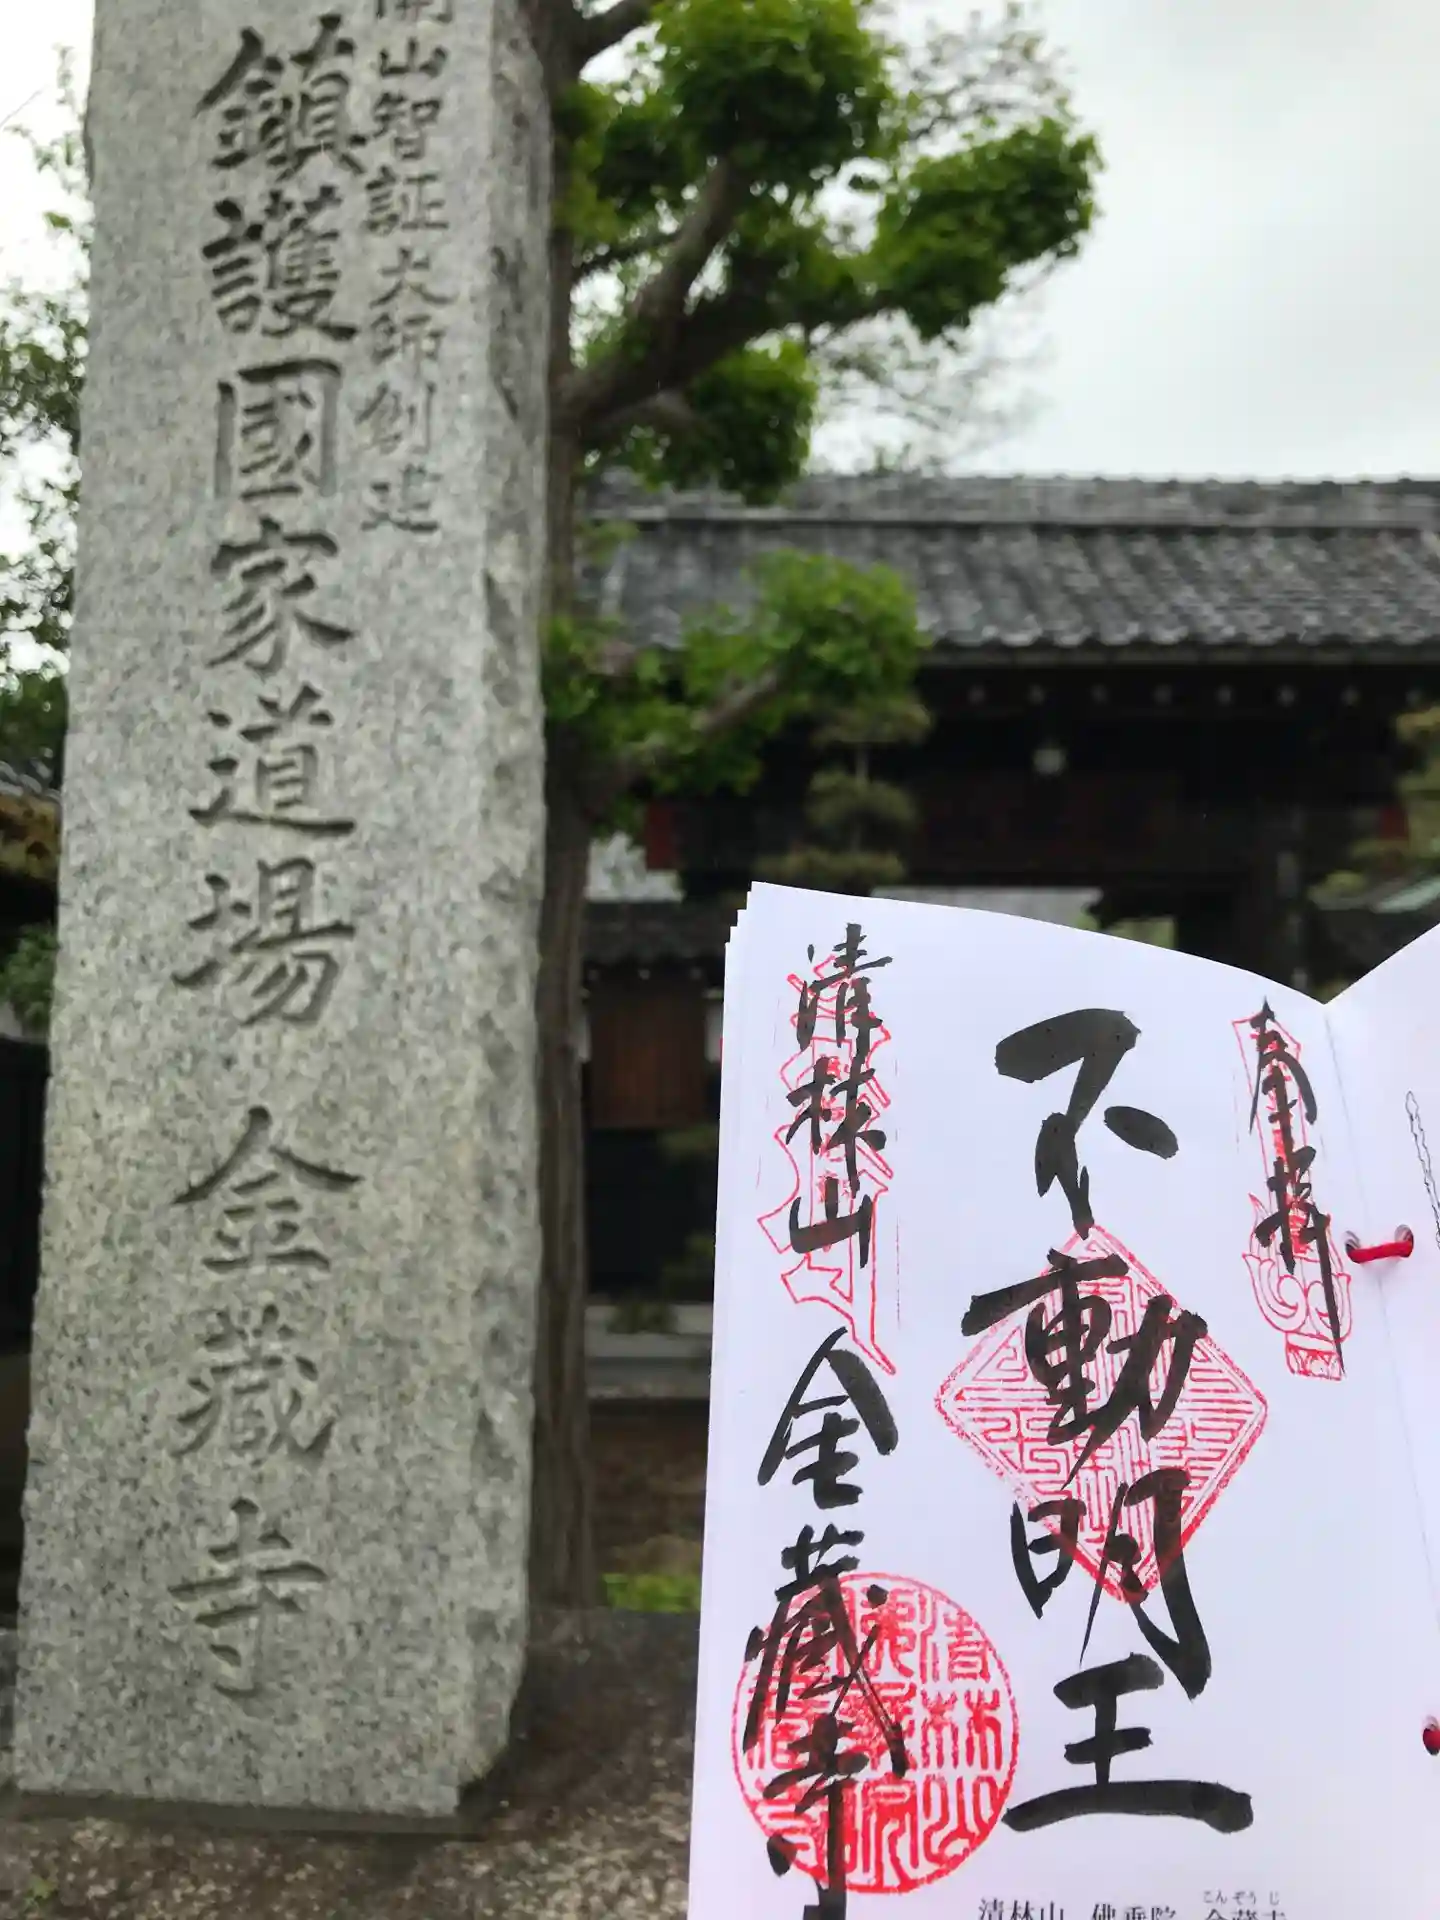 開山智証大師創建
鎮護國家道場 金藏寺
奉拝
不動明王
清林山 金藏寺
こんぞうじ
清林山 佛乗院 金藏寺